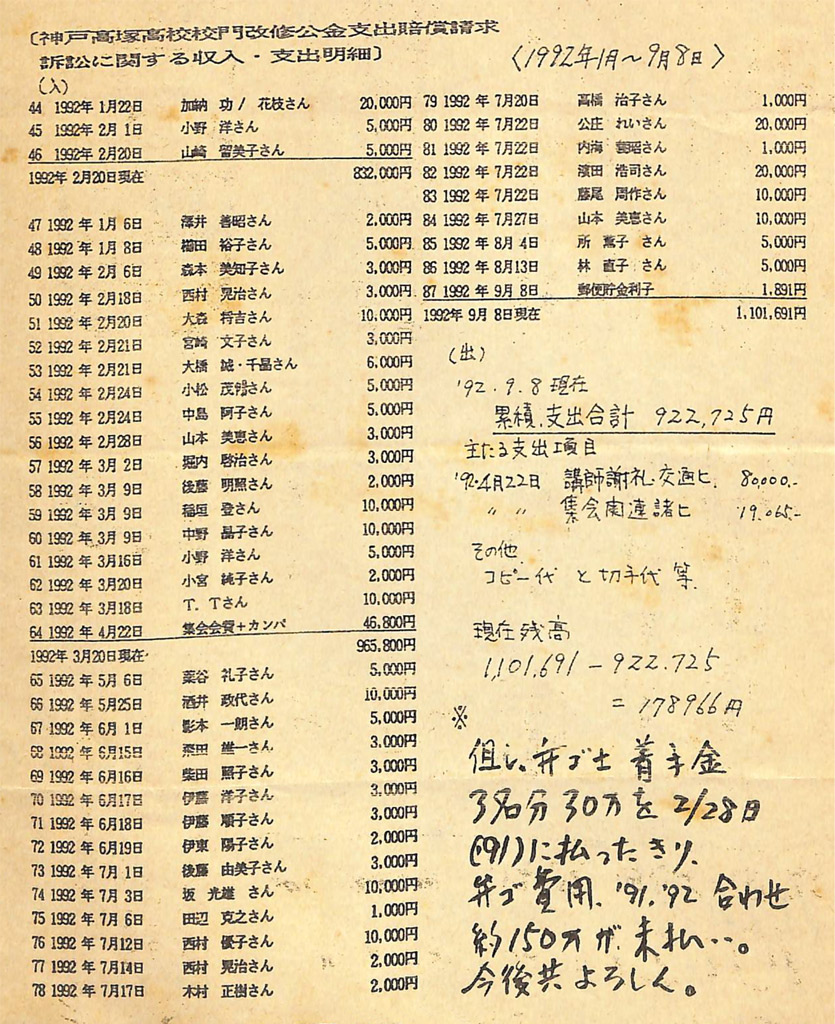 〔神戸高塚高校校門改修公金支出賠償請求
訴訟に関する収入・支出明細〕
〈1992年1月～9月8日〉
(入)
44 1992年 1月22日 加納 功/ 花枝さん 20,000円
45 1992年 2月 1日 小野 洋さん 5,000円
46 1992年 2月20日 山崎 留美子さん 5,000円
1992年 2月20日現在 832,000円
47 1992 年 1月 6日 澤井 善昭さん 2,000円
48 1992 年 1月 8日 櫛田 裕子さん 5,000円
49 1992 年 2月 6日 森本 美知子さん 3,000円
50 1992 年 2月18日 西村 晃治さん 3,000円
51 1992 年 2月20日 大森 将吉さん 10,000円
52 1992 年 2月21日 宮崎 文子さん 3,000円
53 1992 年 2月21日 大橋 誠・千晶さん 6,000円
54 1992 年 2月24日 小松 さん 5,000円
55 1992 年 2月24日 中島 阿子さん 5,000円
56 1992 年 2月28日 山本 美恵さん 3,000円
57 1992 年 3月 2日 堀内 啓治さん 3,000円
58 1992 年 3月 9日 後藤 明照さん 2,000円
59 1992 年 3月 9日 稲垣 登さん 10,000円
60 1992 年 3月 9日 中野 晶子さん 10,000円
61 1992 年 3月16日 小野 洋さん 5,000円
62 1992 年 3月20日 小宮 純子さん 2,000円
63 1992 年 3月18日 T. Tさん 10,000円
64 1992 年 4月22日 集会会費+カンパ 46,800円
1992年 3月20日現在 965,800円
65 1992 年 5月 6日 菜谷 礼子さん 5,000円
66 1992 年 5月25日 酒井 政代さん 10,000円
67 1992 年 6月 1日 影本 一朗さん 5,000円
68 1992 年 6月15日 雄一さん 3,000円
69 1992 年 6月16日 柴田 照子さん 3,000円
70 1992 年 6月17日 伊藤 洋子さん 3,000円
71 1992 年 6月18日 伊藤 順子さん 3,000円
72 1992 年 6月19日 伊東 陽子さん 2,000円
73 1992 年 7月 1日 後藤 由美子さん 3,000円
74 1992 年 7月 3日 坂 光雄 さん 10,000円
75 1992 年 7月 6日 田辺 克之さん 1,000円
76 1992 年 7月12日 西村 優子さん 10,000円
77 1992 年 7月14日 西村 晃治さん 2,000円
78 1992 年 7月17日 木村 正樹さん 2,000円
79 1992 年 7月20日 高橋 治子さん 1,000円
80 1992 年 7月22日 公庄 れいさん 20,000円
81 1992 年 7月22日 内海 さん 1,000円
82 1992 年 7月22日 濱田 浩司さん 20,000円
83 1992 年 7月22日 藤尾 周作さん 10,000円
84 1992 年 7月27日 山本 美恵さん 10,000円
85 1992 年 8月 4日 所 薫子 さん 5,000円
86 1992 年 8月13日 林 直子 さん 5,000円
87 1992 年 9月 8日 郵便貯金利子 1,891円
1992年 9月 8日現在 1,101,691円
(出)
'92.9.8現在
累積支出合計 922,725円
主たる支出項目
'92.4月22日 講師謝礼・交通ヒ. 80,000.-
〃 〃 集会関連諸ヒ 19,065.-
その他
コピー代 と 切手代 等.
現在残高
1,101,691 - 922.725
= 178966円
※
但し、弁ゴ士 着手金
3名分 30万を 2/28日
('91)に払ったきり、
弁ゴ費用、'91, '92 合わせ
約150万が 未払…。
今後共よろしく。